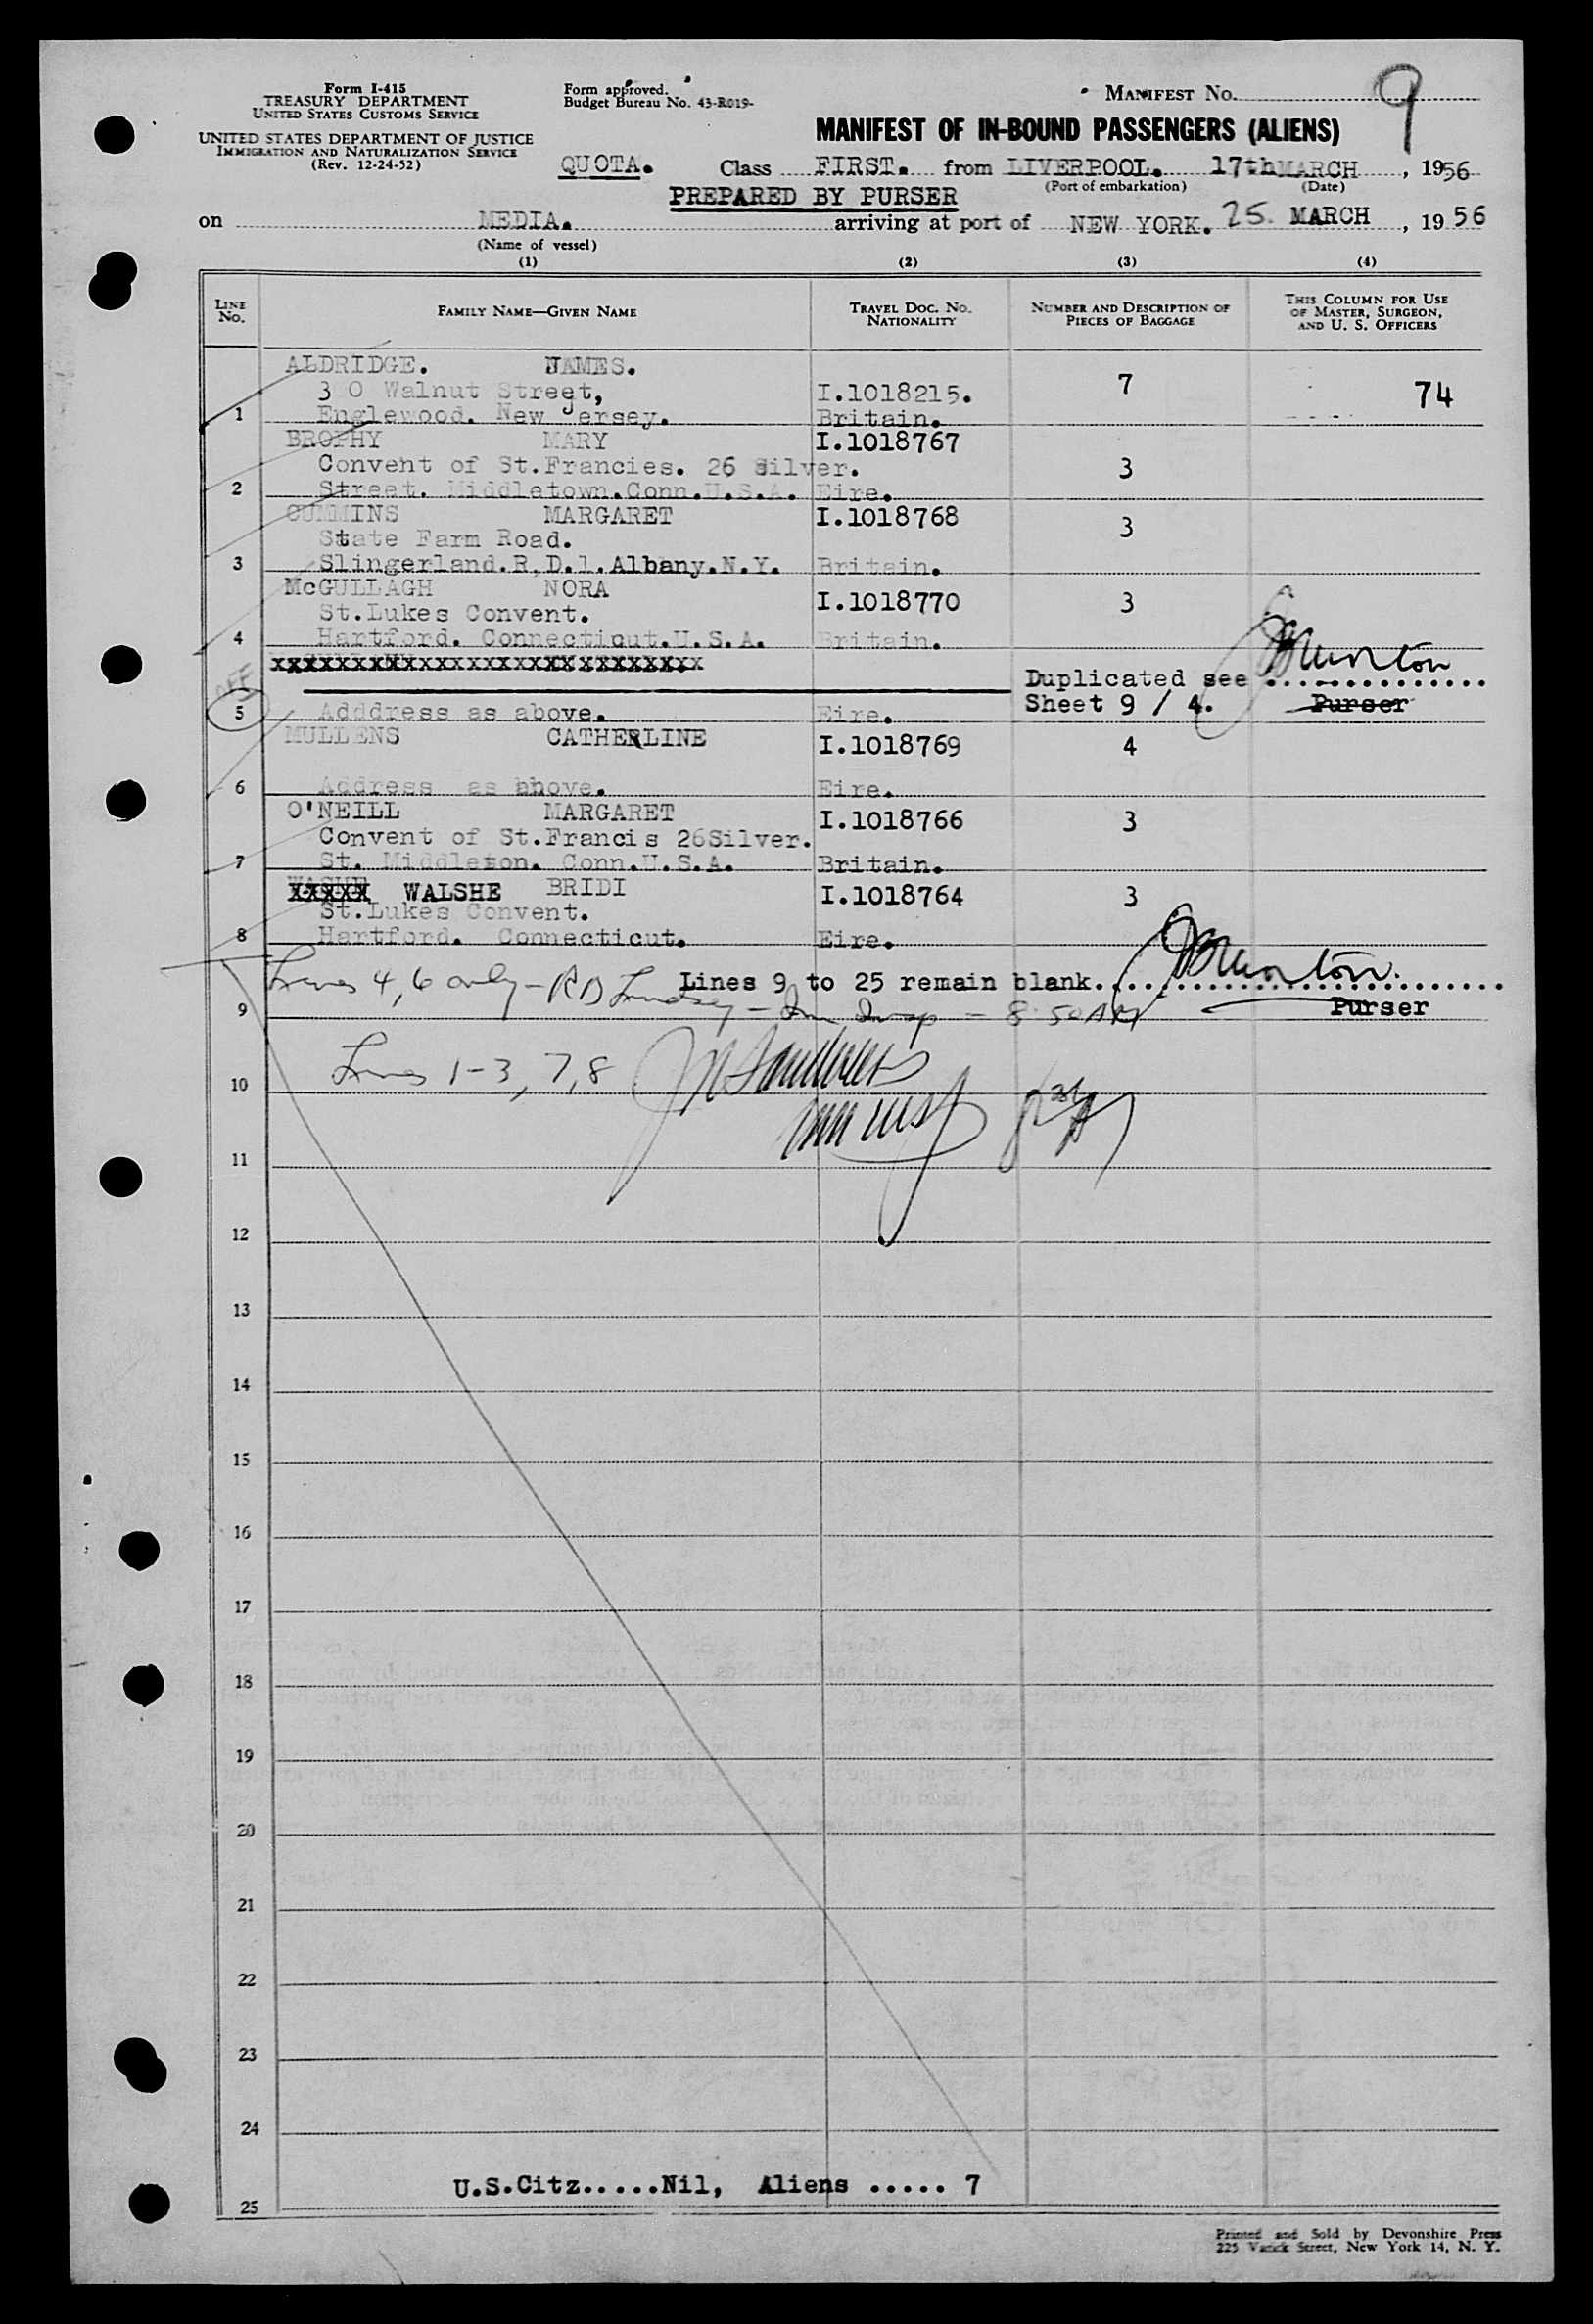 Form I-415
TREASURY DEPARTMENT
UNITED STATES CUSTOMS SERVICE
UNITED STATES DEPARTMENT OF JUSTICE
IMMIGRATION AND NATURALIZATION SERVICE
(Rev. 12-24-52)
Form approved.
Budget Bureau No. 43-R019-
MANIFEST No. 9
MANIFEST OF IN-BOUND PASSENGERS (ALIENS)
QUOTA. Class FIRST. from LIVERPOOL. 17th MARCH, 1956
(Port of embarkation) (Date)
PREPARED BY PURSER
on MEDIA. arriving at port of NEW YORK. 25 MARCH, 1956
(Name of vessel)
(1) (2) (3) (4)
LINE No. FAMILY NAME—GIVEN NAME TRAVEL DOC. NO. NATIONALITY NUMBER AND DESCRIPTION OF PIECES OF BAGGAGE THIS COLUMN FOR USE OF MASTER, SURGEON, AND U. S. OFFICERS
ALDRIDGE. JAMES.
3 0 Walnut Street, I.1018215. 7 74
1 Englewood. New Jersey. Britain.
BROPHY MARY I.1018767
Convent of St.Francies. 26 Silver. 3
2 Street. Middletown.Conn.U.S.A. Eire.
CUMMINS MARGARET I.1018768
State Farm Road. 3
3 Slingerland.R.D.1.Albany.N.Y. Britain.
McGULLAGH NORA I.1018770 3
St.Lukes Convent.
4 Hartford. Connecticut.U.S.A. Britain.
xxxxxxxxxxxxxxxxxxxxxxxxxxx
OFF Duplicated see JBrunton
5 Adddress as above. Eire. Sheet 9 / 4. Purser
MULLENS CATHERLINE I.1018769 4
6 Address as above. Eire.
O'NEILL MARGARET I.1018766 3
Convent of St.Francis 26Silver.
7 St. Middleton. Conn.U.S.A. Britain.
XXXXX WALSHE BRIDI I.1018764 3
St.Lukes Convent.
8 Hartford. Connecticut. Eire.
Lines 4, 6 only - RD Lindsey - Imm Insp - 8:50 AM
Lines 9 to 25 remain blank. JBrunton.
9 Purser
Lines 1-3, 7, 8
10
11
12
13
14
15
16
17
18
19
20
21
22
23
24
U.S.Citz.....Nil, Aliens ..... 7
25
Printed and Sold by Devonshire Press
225 Varick Street, New York 14, N. Y.